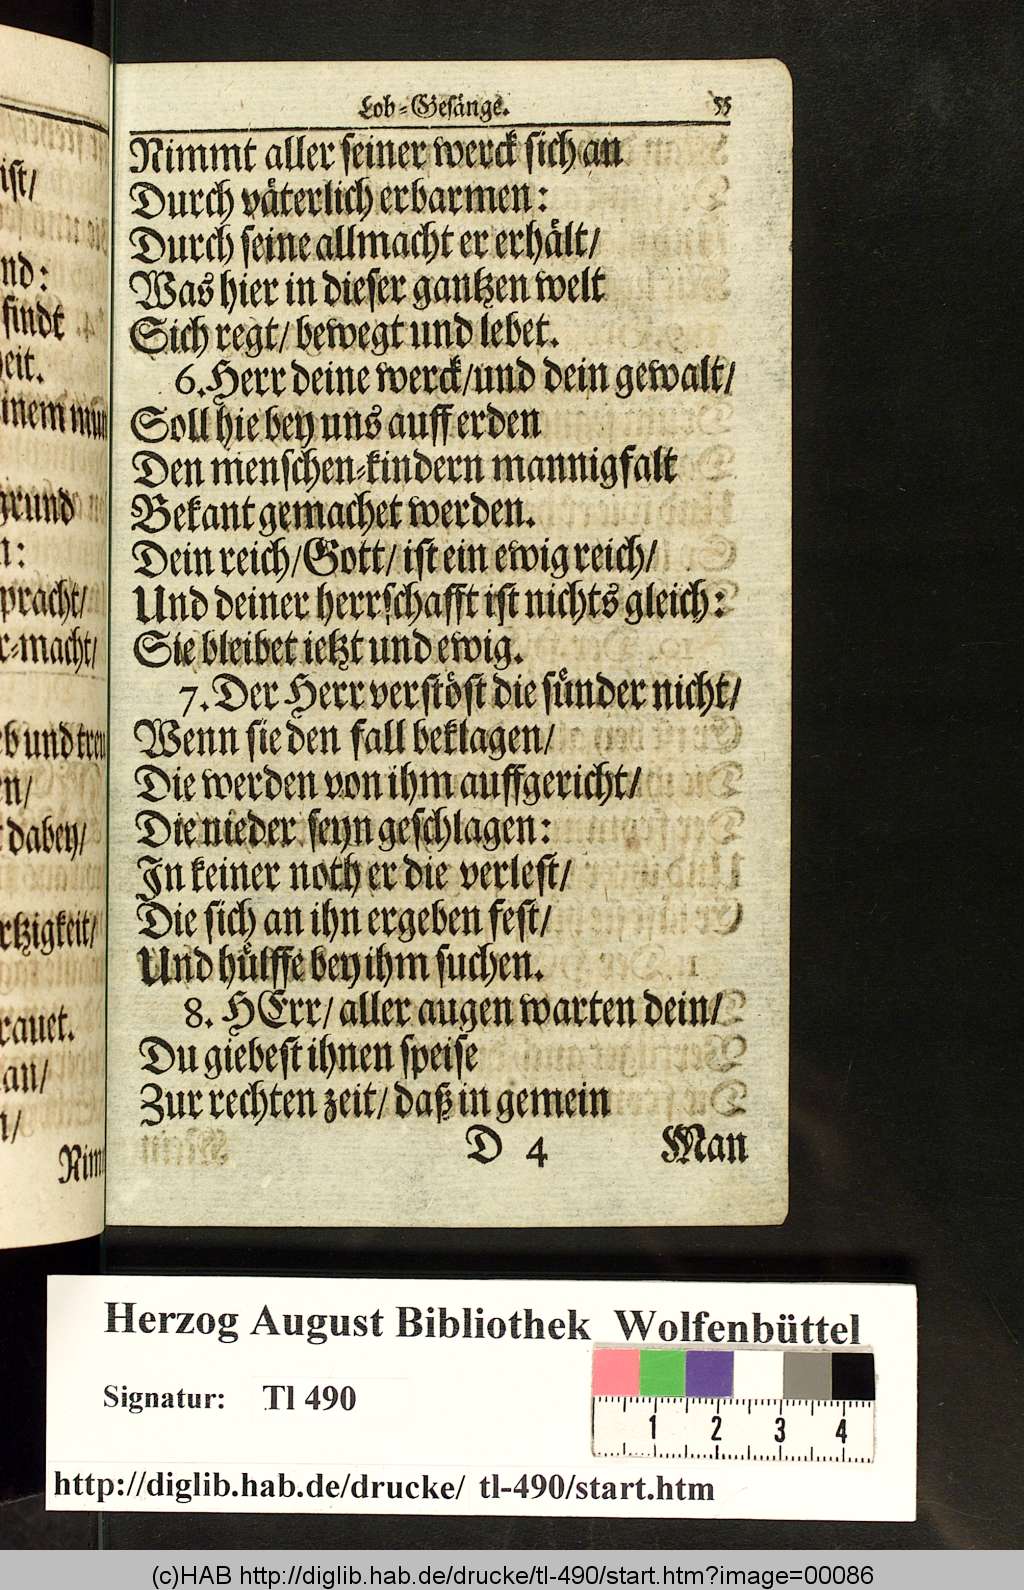 ist/
nd:
findt
eit.
inem mun
grund
n:
pracht/
r-macht/
eb und treu
en/
t dabey/
rtzigkeit/
rauet.
an/
n/
Nim
Lob-Gesänge. 55
Nimmt aller seiner werck sich an
Durch väterlich erbarmen:
Durch seine allmacht er erhält/
Was hier in dieser gantzen welt
Sich regt/ bewegt und lebet.
6. Herr deine werck/und dein gewalt/
Soll hie bey uns auff erden
Den menschen-kindern mannigfalt
Bekant gemachet werden.
Dein reich/Gott/ ist ein ewig reich/
Und deiner herrschafft ist nichts gleich:
Sie bleibet ietzt und ewig.
7. Der Herr verstöst die sünder nicht/
Wenn sie den fall beklagen/
Die werden von ihm auffgericht/
Die nieder seyn geschlagen:
In keiner noth er die verlest/
Die sich an ihn ergeben fest/
Und hülffe bey ihm suchen.
8. HErr/ aller augen warten dein/
Du giebest ihnen speise
Zur rechten zeit/ daß in gemein
D 4 Man
Herzog August Bibliothek Wolfenbüttel
Signatur: Tl 490
1 2 3 4
http://diglib.hab.de/drucke/ tl-490/start.htm
(c)HAB http://diglib.hab.de/drucke/tl-490/start.htm?image=00086